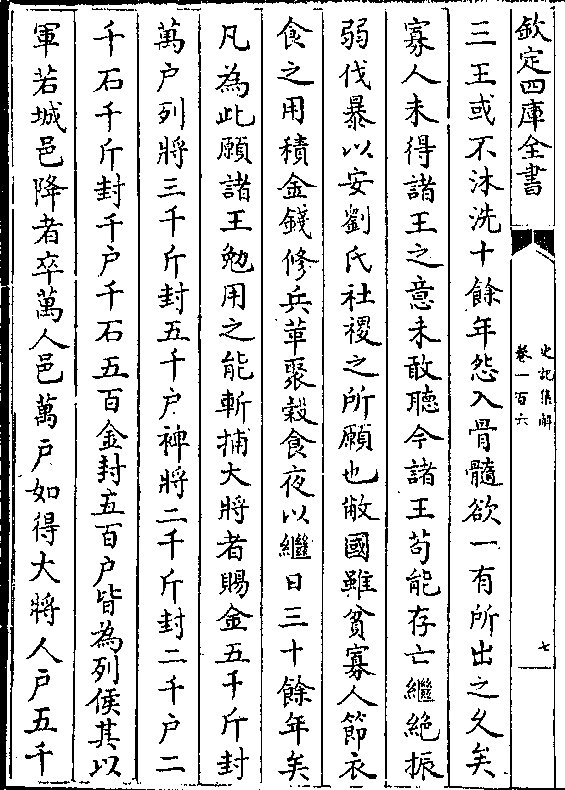 欽定四庫全書
史記集解
卷一百六
七
三王或不沐洗十餘年怨入骨髓欲一有所出之久矣
寡人未得諸王之意未敢聽今諸王苟能存亡繼絶振
弱伐暴以安劉氏社稷之所願也敝國雖貧寡人節衣
食之用積金錢修兵革聚穀食夜以繼日三十餘年矣
凡為此願諸王勉用之能斬捕大將者賜金五千斤封
萬户列將三千斤封五千户裨將二千斤封二千户二
千石千斤封千户千石五百金封五百户皆為列侯其以
軍若城邑降者卒萬人邑萬户如得大將人户五千